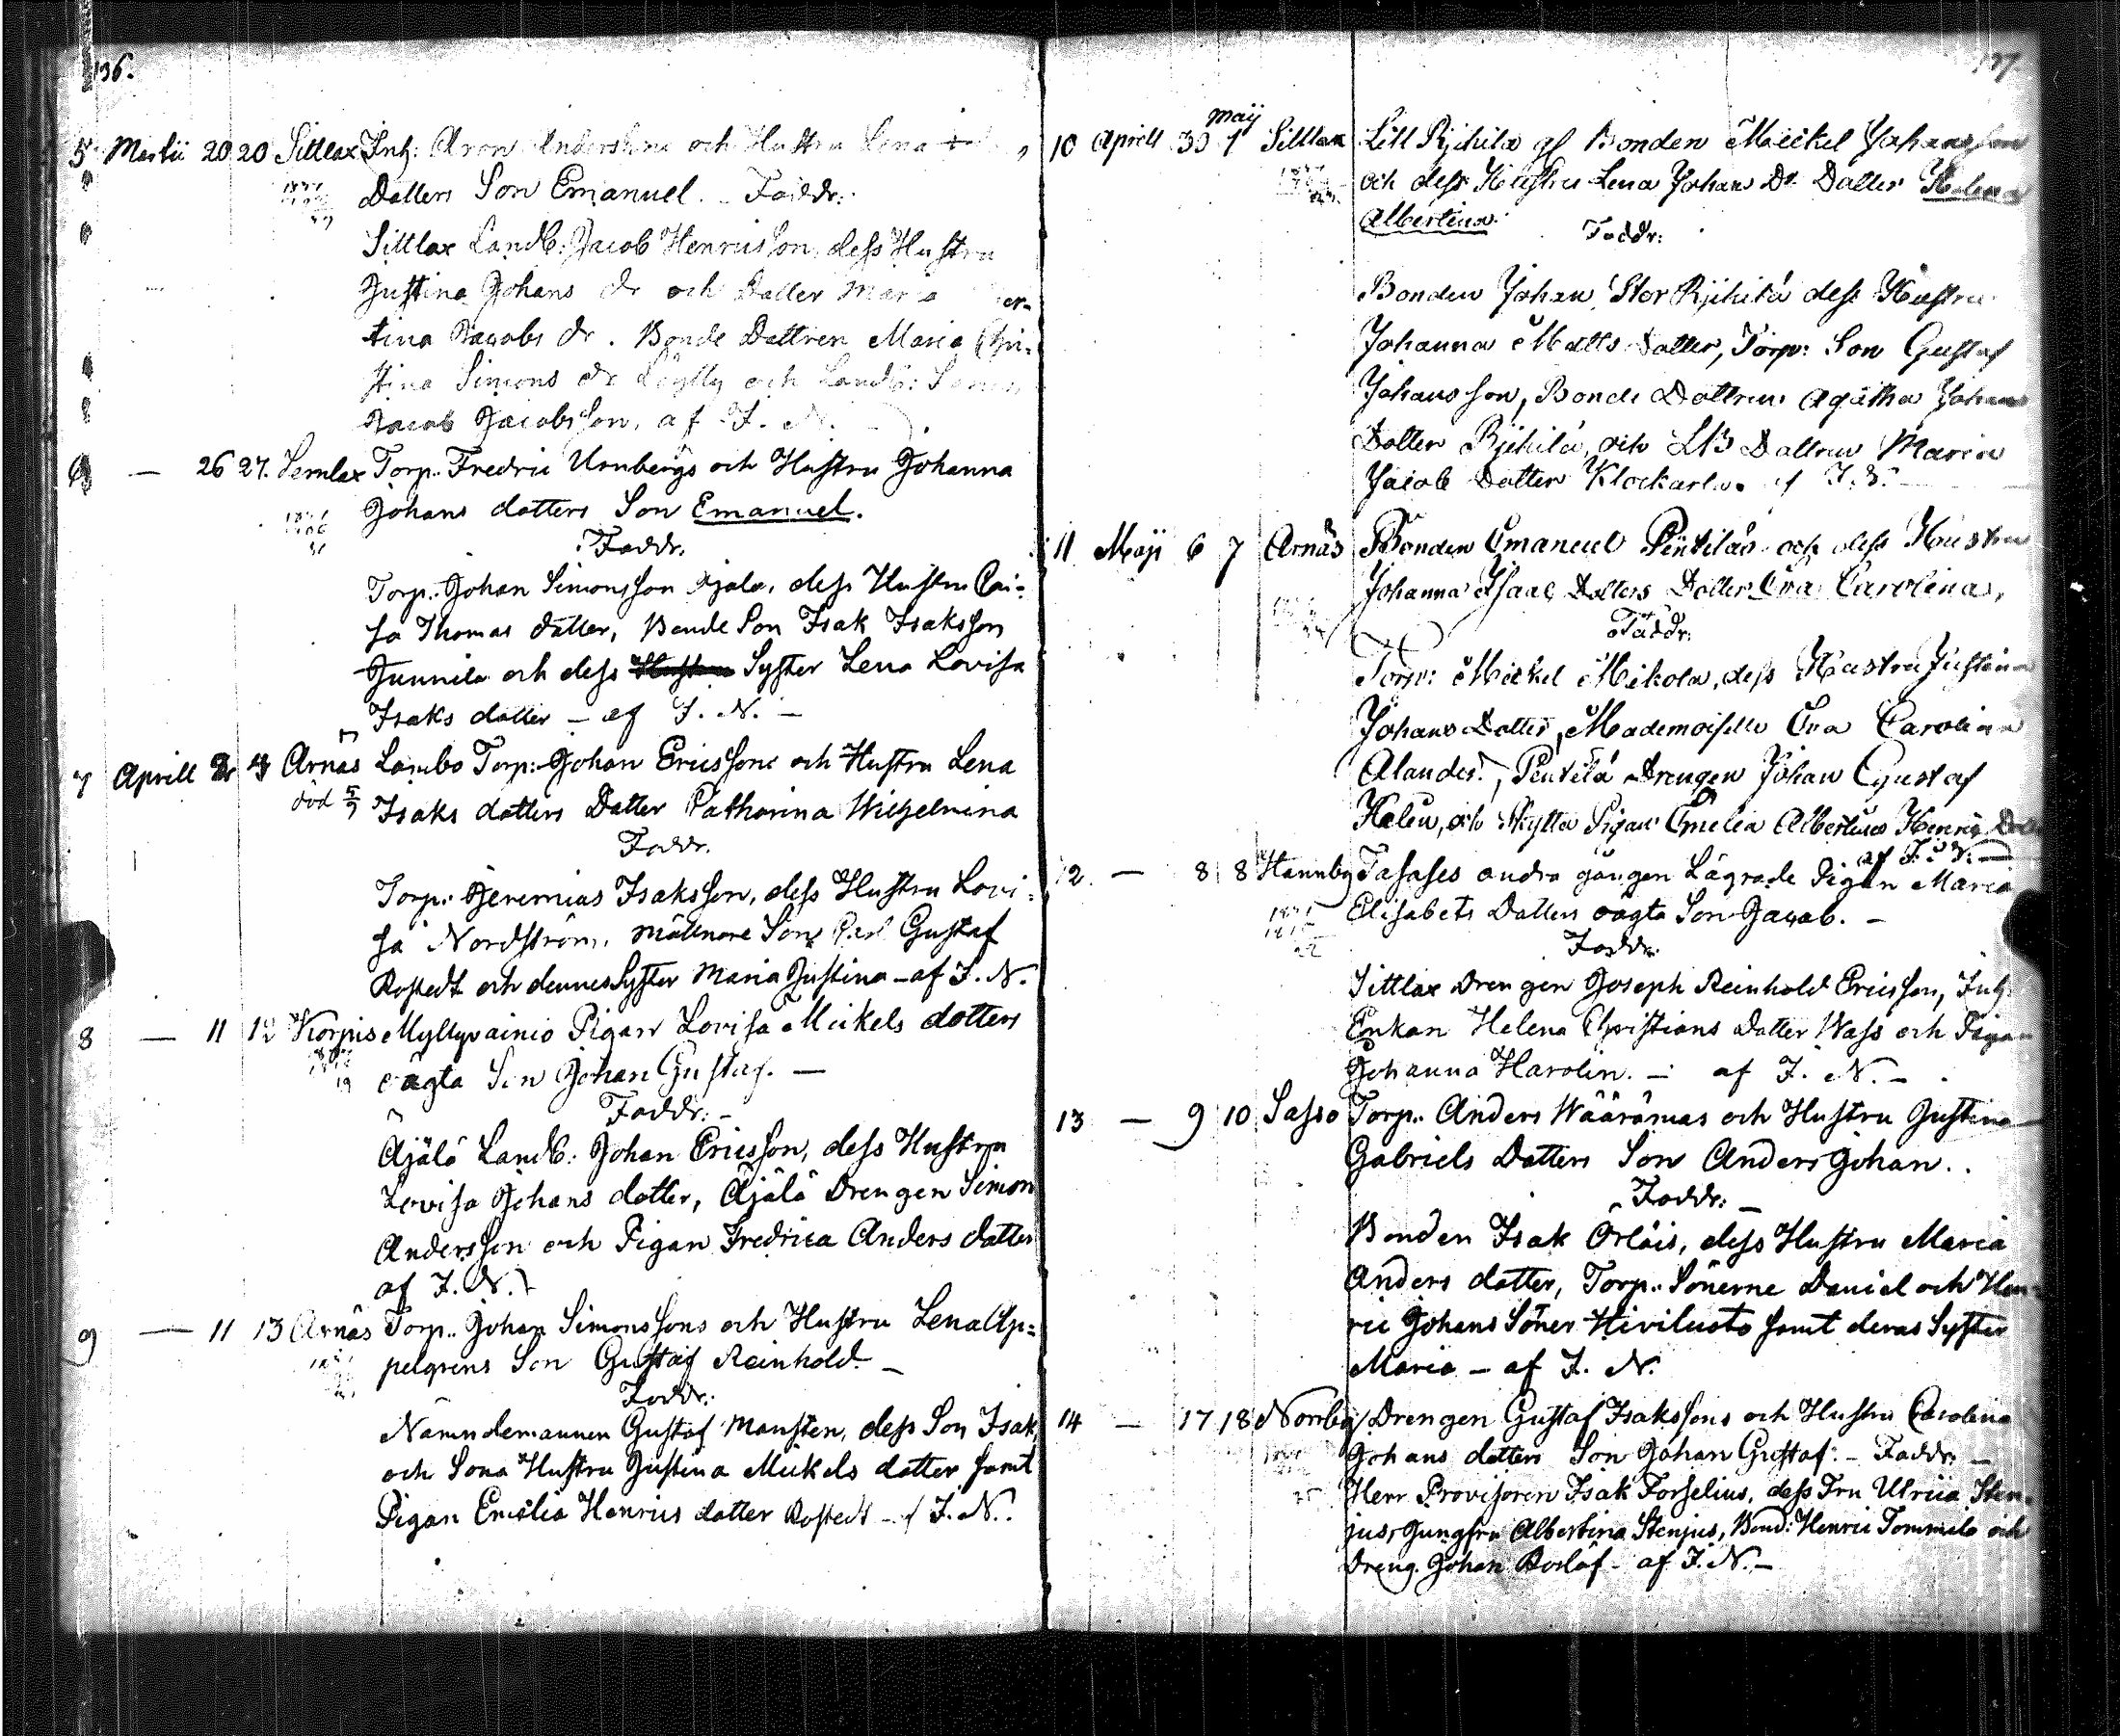 136.
5 Martii 20 20 Sittlax Inh: Aron Anderssons och Hustru Lena
Dotters Son Emanuel. Faddr:
Sittlax Landb: Jacob Henricsson, dess Hustru
Justina Johans dr och Dotter Maria
tina Jacobs dr. Bonde Dottren Maria Chri-
stina Simons dr Löyly och Landb: Sonen
Jacob Jacobsson, af I. N.
6 — 26 27. Lemlax Torp. Fredric Urnbergs och Hustru Johanna
Johans dotters Son Emanuel.
Faddr.
Torp. Johan Simonsson Äjälä, dess Hustru Cai-
sa Thomas dotter, Bonde Son Isak Isaksson
Junnila och dess Syster Lena Lovisa
Isaks dotter — af I. N. —
7 Aprill 2 3 Arnäs Lambo Torp: Johan Ericssons och Hustru Lena
död 5/7 Isaks dotters Dotter Catharina Wilhelmina
Faddr.
Torp. Jeremias Isaksson, dess Hustru Lovi-
sa Nordström, mölnare Son Carl Gustaf
Rostedt och dennes Syster Maria Justina — af I. N.
8 — 11 12 Korpis Myllyvainio Pigan Lovisa Mickels dotters
19 oägta Son Johan Gustaf. —
Faddr: —
Äjälä Landb: Johan Ericsson, dess Hustru
Lovisa Johans dotter, Äjälä Drengen Simon
Andersson och Pigan Fredrica Anders dotter
af I. N.
9 — 11 13 Arnäs Torp. Johan Simonssons och Hustru Lena Ap-
pelgrens Son Gustaf Reinhold. —
Faddr:
Nämndemannen Gustaf Monsten, dess Son Isak,
och Sona Hustru Justina Mickels dotter samt
Pigan Emelia Henrics dotter Rostedt — af I. N.
137.
maij
10 Aprill 30 1 Sittlax Lill Rjihilä af Bonden Mickel Johansson
och dess Hustru Lena Johans Dr. Dotter Helena
Albertina.
Faddr:
Bonden Johan Stor Rjihilä dess Hustru
Johanna Matts Dotter, Torp: Son Gustaf
Johansson, Bonde Dottren Agatha Johans
Dotter Rjihilä, och LB Dottren Maria
Jacob Dotter Klockarla. af I. N.
11 Maji 6 7 Arnäs Bonden Emanuel Pentiläs och dess Hustru
Johanna Isaac Dotters Dotter Eva Carolina,
Faddr:
Torp: Mickel Mikola, dess Hustru Justina
Johans Dotter, Mademoiselle Eva Carolina
Alander, Pentilä Drengen Johan Gustaf
Helen, och Skyttä Pigan Emelia Albertina Henric Dotter
af I. N. —
12. — 8 8 Hannby Tasases andra gången Lägrade Pigan Maria
Elisabets Dotters oägta Son Jacob. —
Faddr.
Sittlax Drengen Joseph Reinhold Ericsson, Inh.
Enkan Helena Christians Dotter Wass och Pigan
Johanna Harolin. — af I. N. —
13 — 9 10 Sasso Torp. Anders Wäärämas och Hustru Justina
Gabriels Dotters Son Anders Johan.
Faddr: —
Bonden Isak Orläis, dess Hustru Maria
Anders dotter, Torp. Sönerne Daniel och Hen-
ric Johans Söner Hiviluoto samt deras Syster
Maria — af I. N.
14 — 17 18 Norrby Drengen Gustaf Isakssons och Hustru Carolina
Johans dotters Son Johan Gustaf: — Faddr: —
Herr Provisoren Isak Forselius, dess Fru Ulrica Sten-
jus, Jungfru Albertina Stenjus, Bond: Henric Tommila och
Dreng. Johan Roslöf — af I. N. —